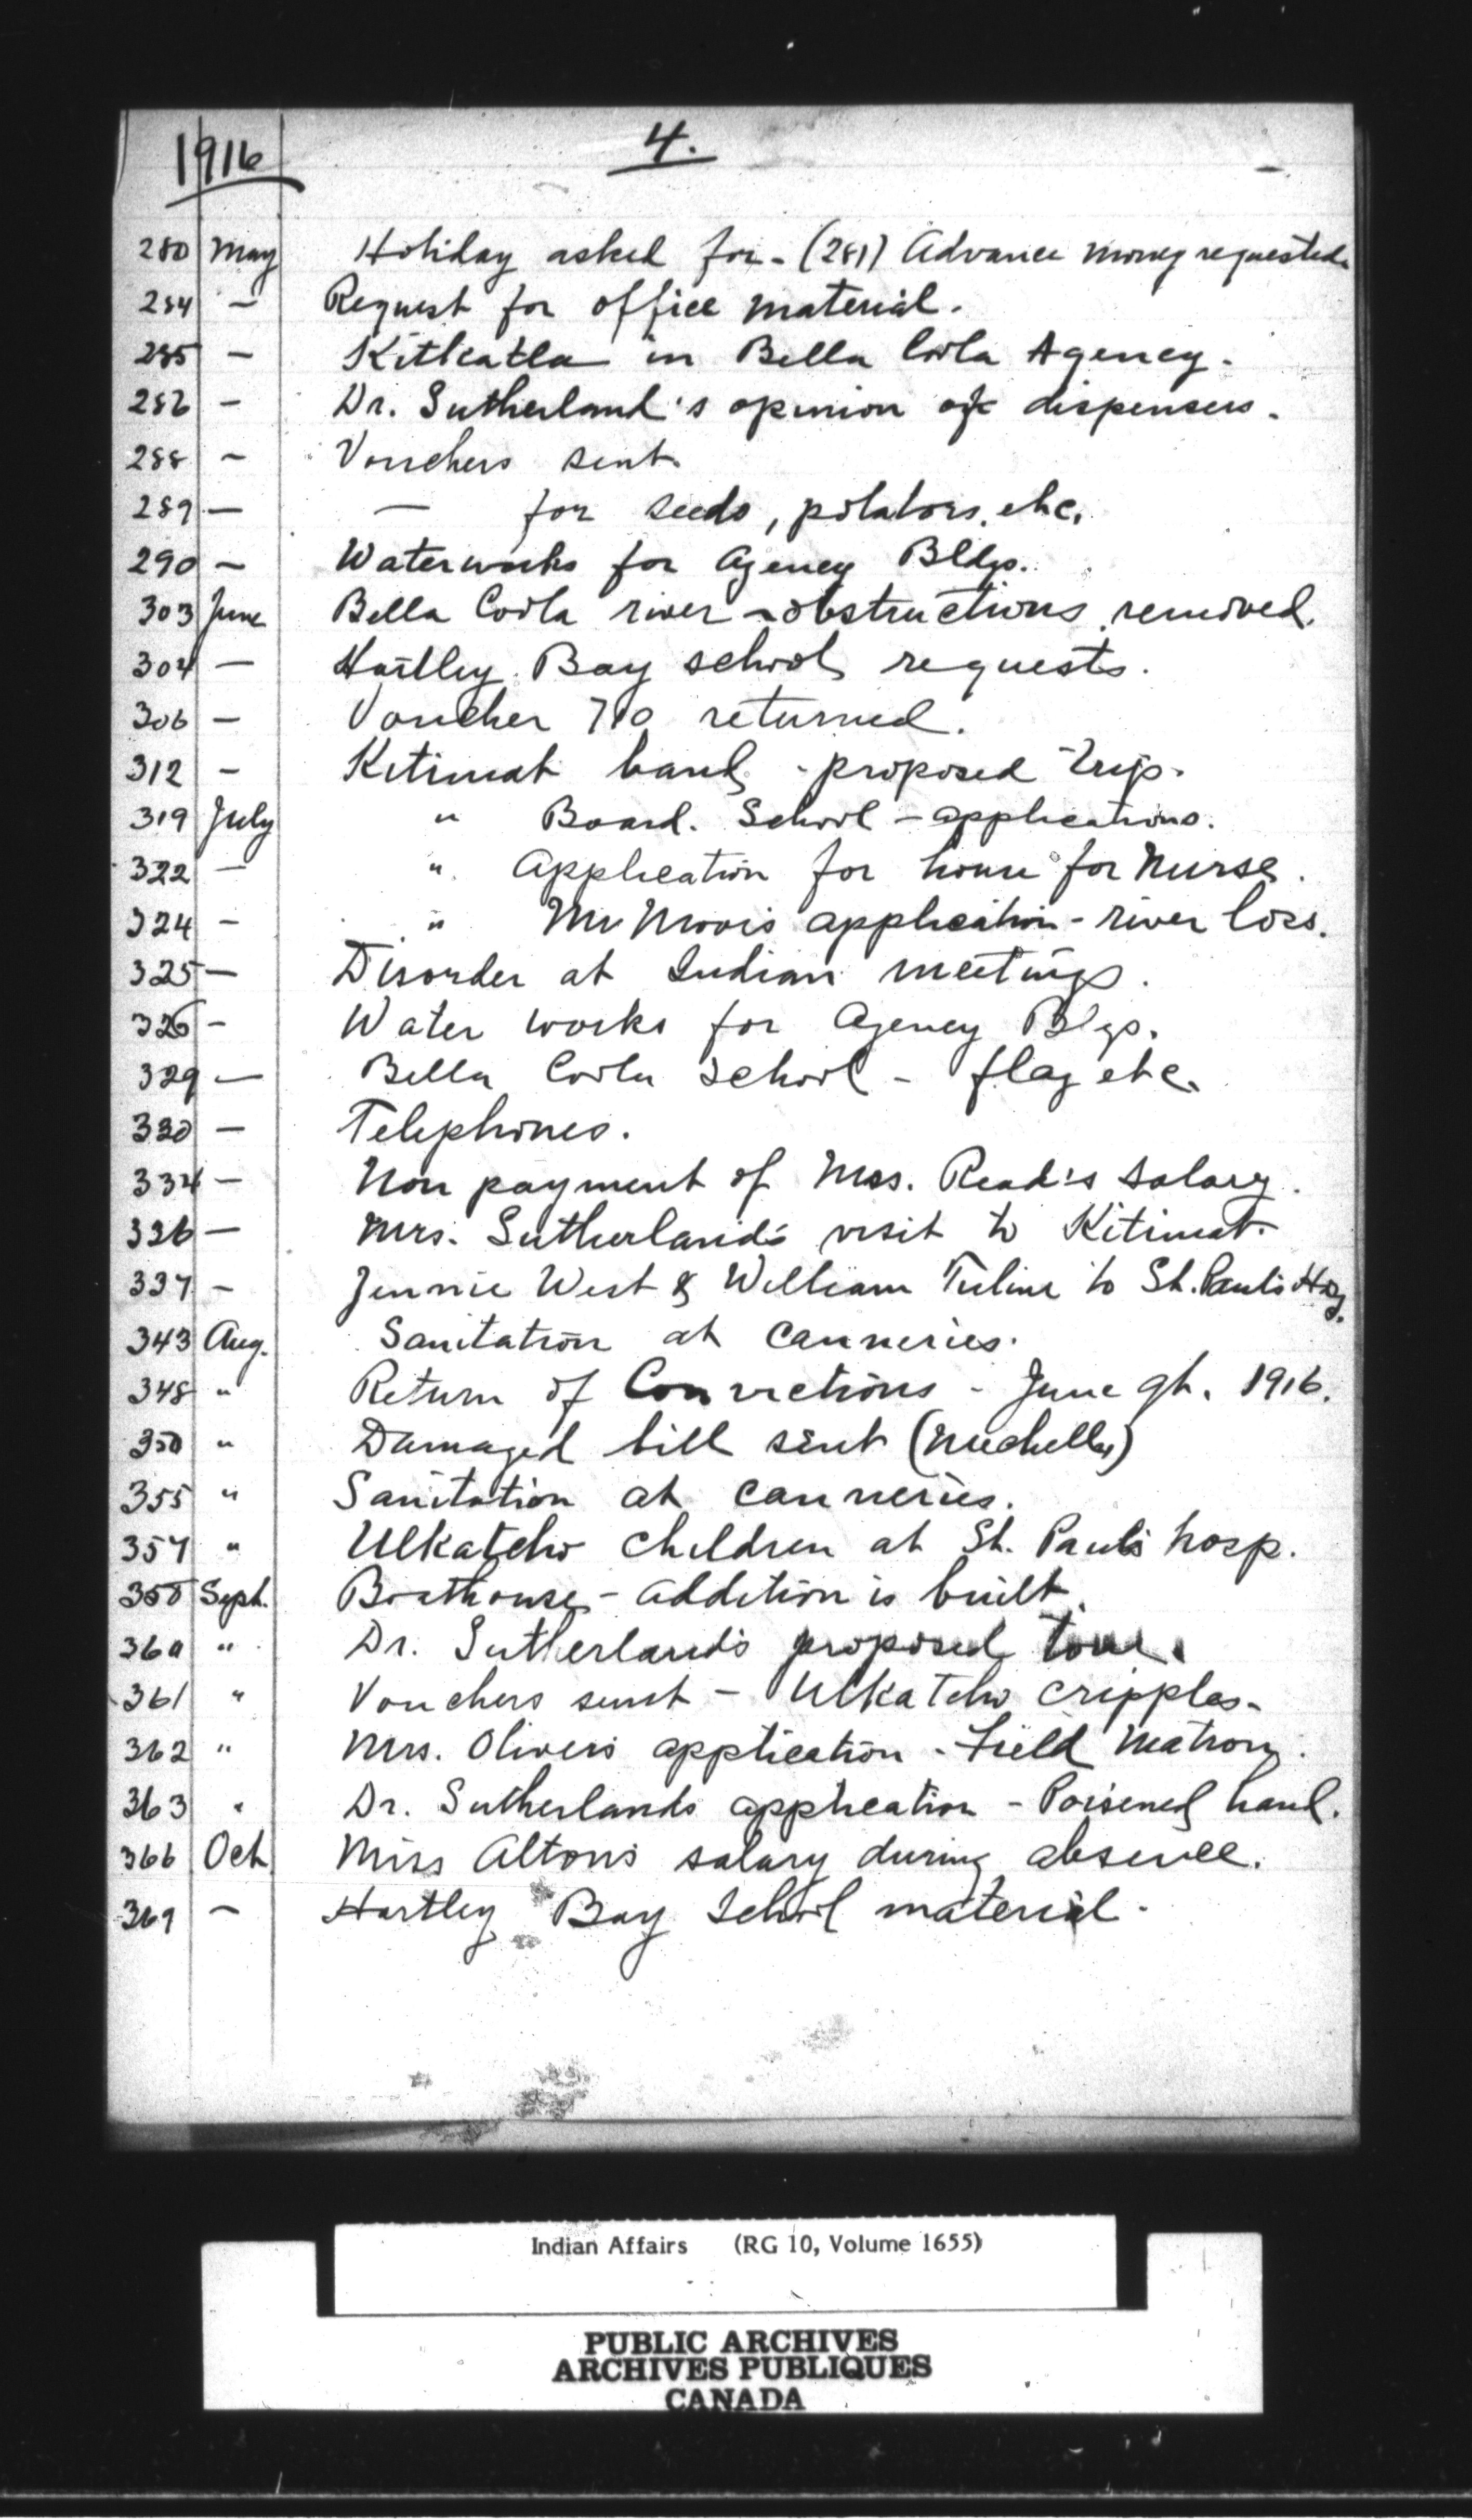 1916
4.
280 May Holiday asked for - (281) Advance money requested.
284 — Request for office material.
285 — Kitkatla in Bella Coola Agency.
286 — Dr. Sutherland's opinion of dispensers.
288 — Vouchers sent.
289 — — for seeds, potatoes, etc.
290 — Waterworks for Agency Bldgs.
303 June Bella Coola river - obstructions removed.
304 — Hartley Bay school requests.
306 — Voucher 710 returned.
312 — Kitimat band - proposed trip.
319 July " Board. School - applications.
322 — " Application for house for Nurse.
324 — " application - river loss.
325 — Disorder at Indian meetings.
326 — Water works for Agency Blgs.
329 — Bella Coola school - flag etc.
330 — Telephones.
334 — Non payment of Mrs. Read's salary.
336 — Mrs. Sutherland's visit to Kitimat.
337 — Jennie West & William to St. Paul's
343 Aug. Sanitation at canneries.
348 " Return of Convictions - June qt. 1916.
350 " Damaged bill sent
355 " Sanitation at canneries.
357 " Ulkatcho children at St. Paul's hosp.
358 Sept. Boathouse - addition is built.
360 " Dr. Sutherland's proposed tour.
361 " Vouchers sent - Ulkatcho cripples.
362 " Mrs. Oliver's application - Field Matron.
363 " Dr. Sutherlands application - Poisened hand.
366 Oct Miss Alton's salary during absence.
369 — Hartley Bay School material.
Indian Affairs (RG 10, Volume 1655)
PUBLIC ARCHIVES
ARCHIVES PUBLIQUES
CANADA